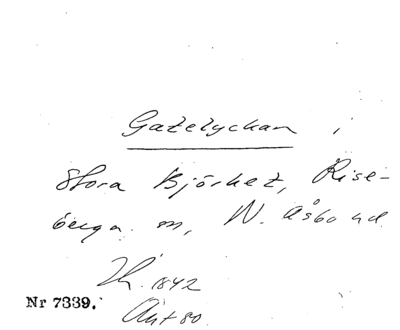 Gatelyckan,
Stora Björket, Rise-
berga sn, N. Åsbo hd
Lh. 1842
Nr 7339.
Akt 80